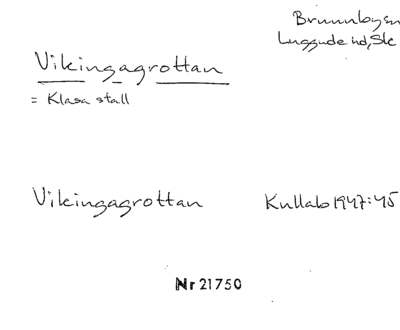 Brunnbysn
Luggude hd, Sk
Vikingagrottan
= Klasa stall
Vikingagrottan Kullabo 1947:45
Nr 21750